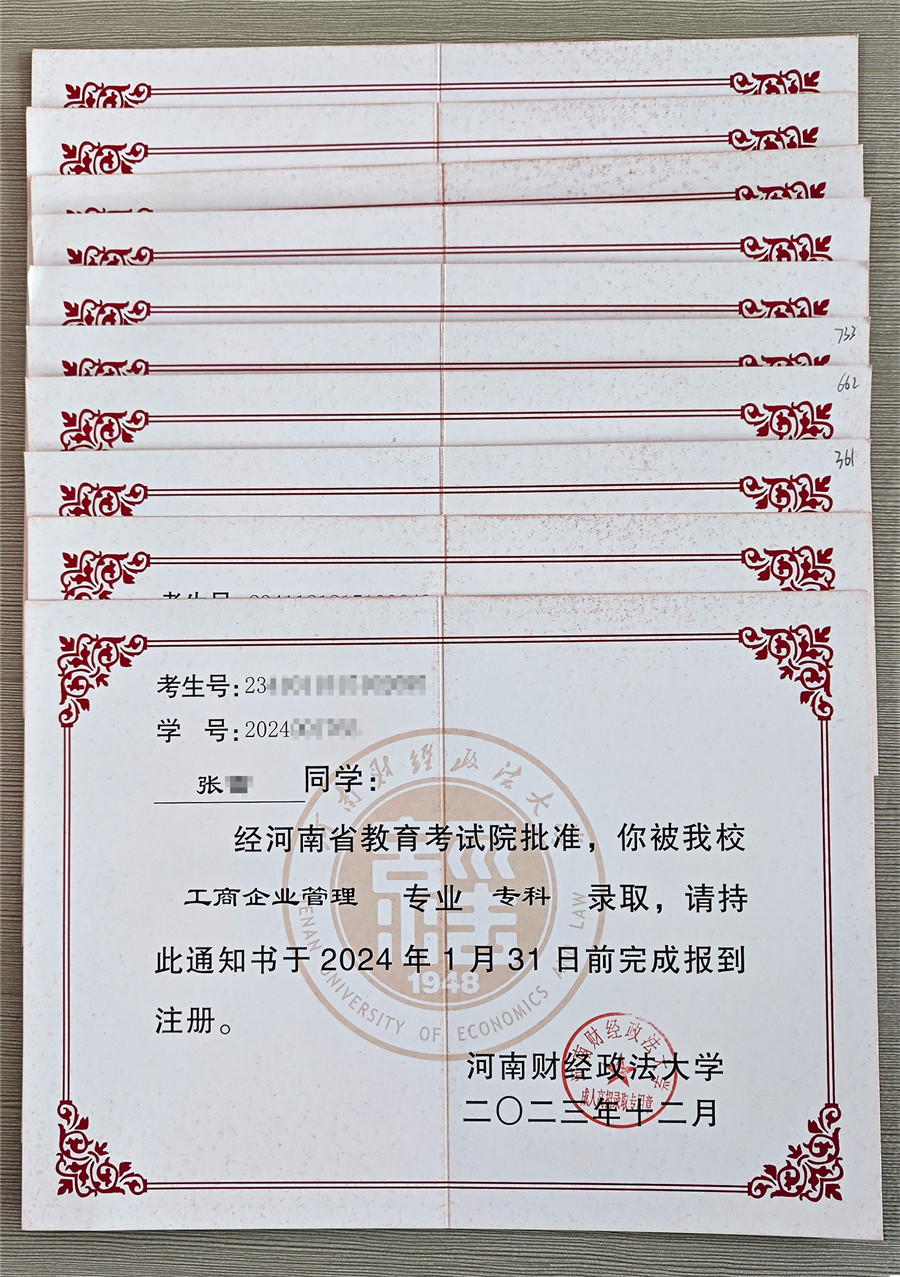 733
662
361
考生号:23
学 号:2024
张 同学:
经河南省教育考试院批准，你被我校
工商企业管理 专业 专科 录取，请持
此通知书于 2024 年 1 月 31 日前完成报到
注册。
河南财经政法大学
HENAN UNIVERSITY OF ECONOMICS AND LAW
1948
河南财经政法大学
二〇二三年十二月
河南财经政法大学
成人高招录取专用章